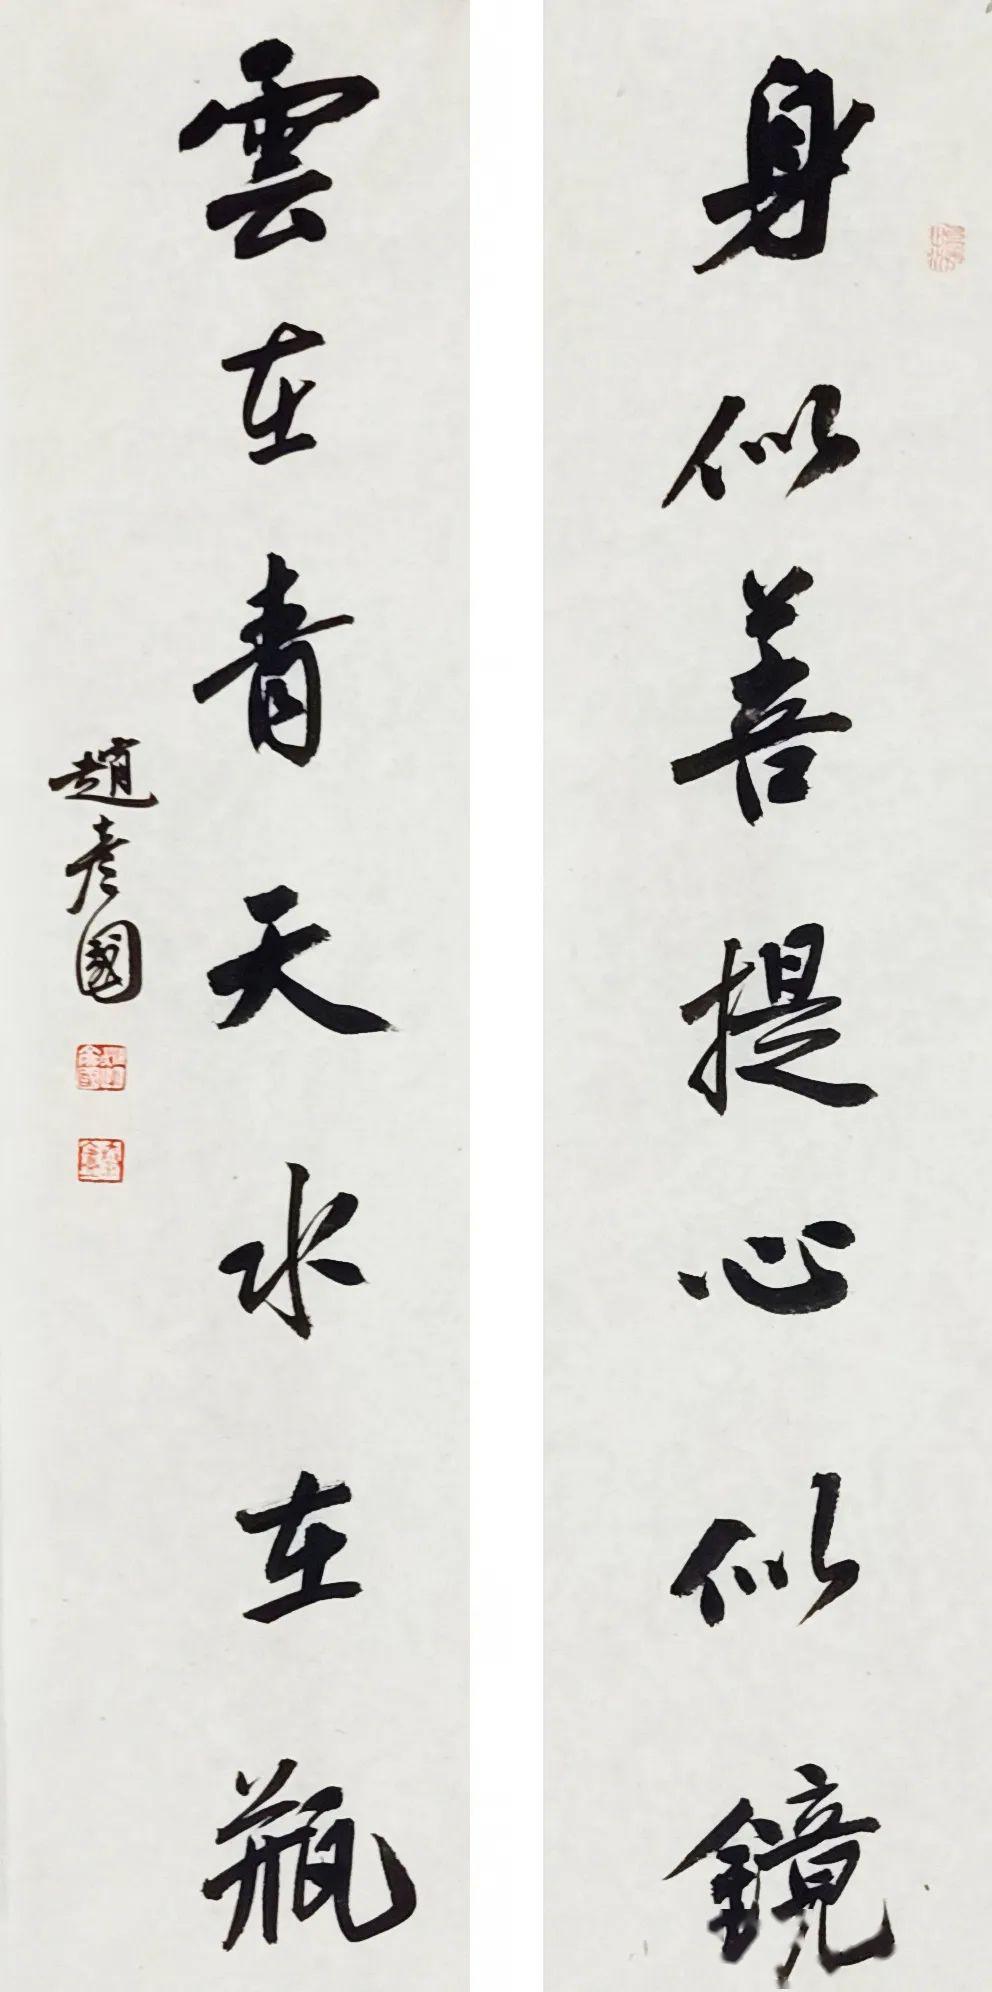 身似善提心似鏡
雲在青天水在瓶
趙彥國